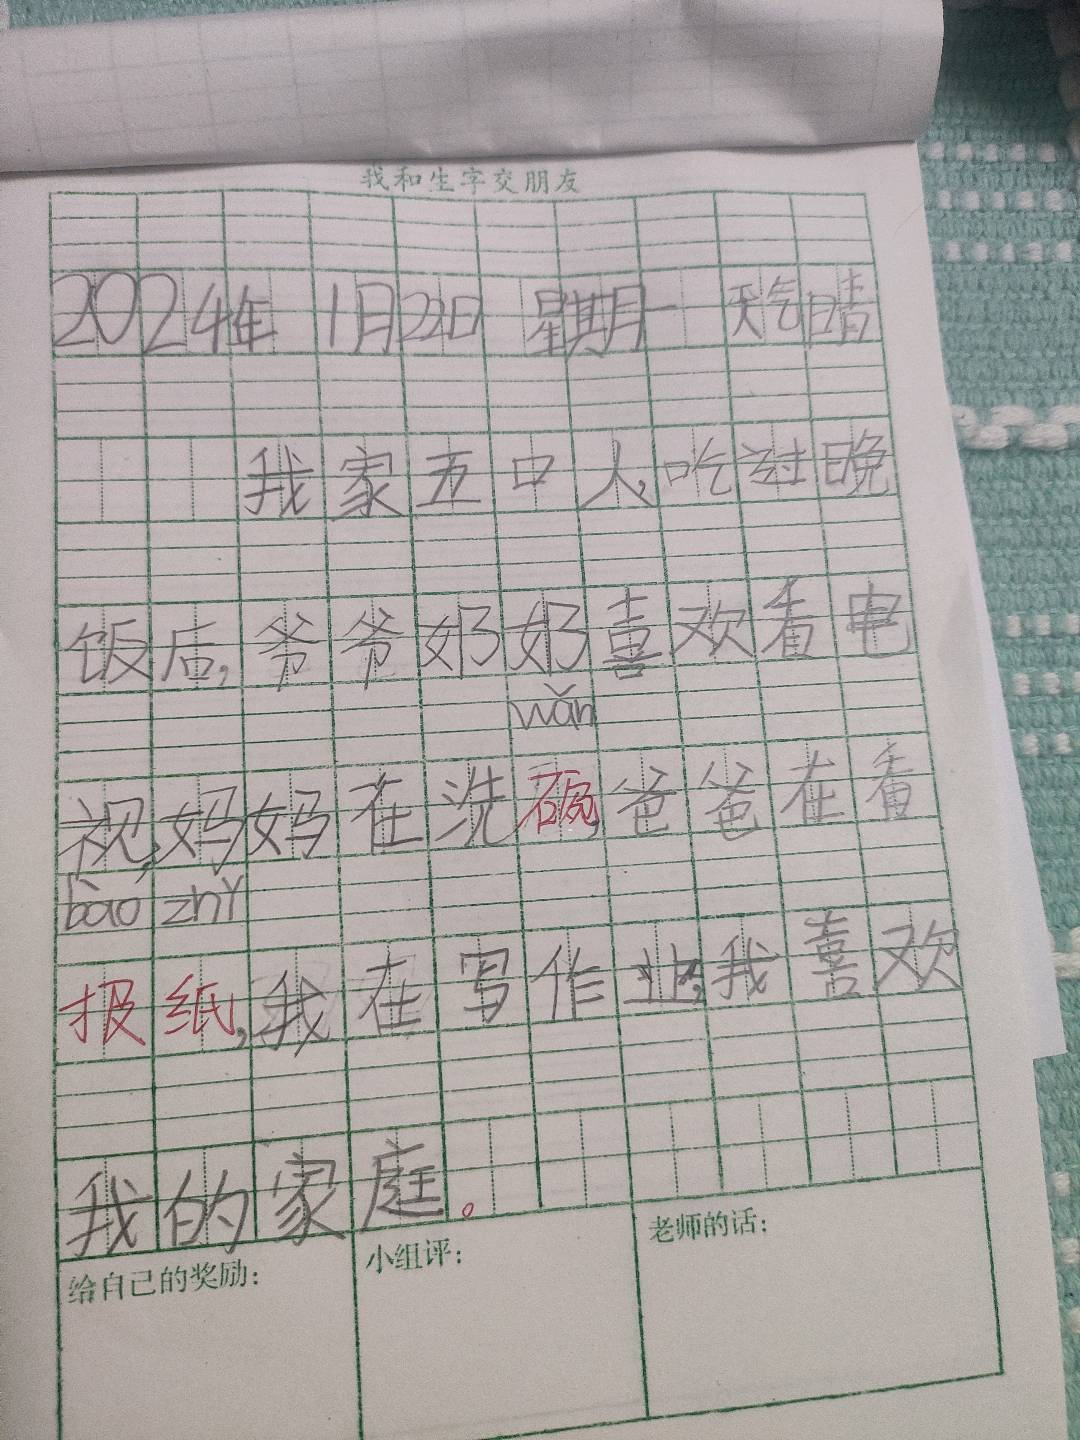 我和生字交朋友
2024年 1月22日 星期一 天气晴
我家五口人,吃过晚
饭后,爷爷奶奶喜欢看电
wǎn
视,妈妈在洗碗,爸爸在看
bào zhǐ
报纸,我在写作业,我喜欢
我的家庭。
给自己的奖励:
小组评:
老师的话: